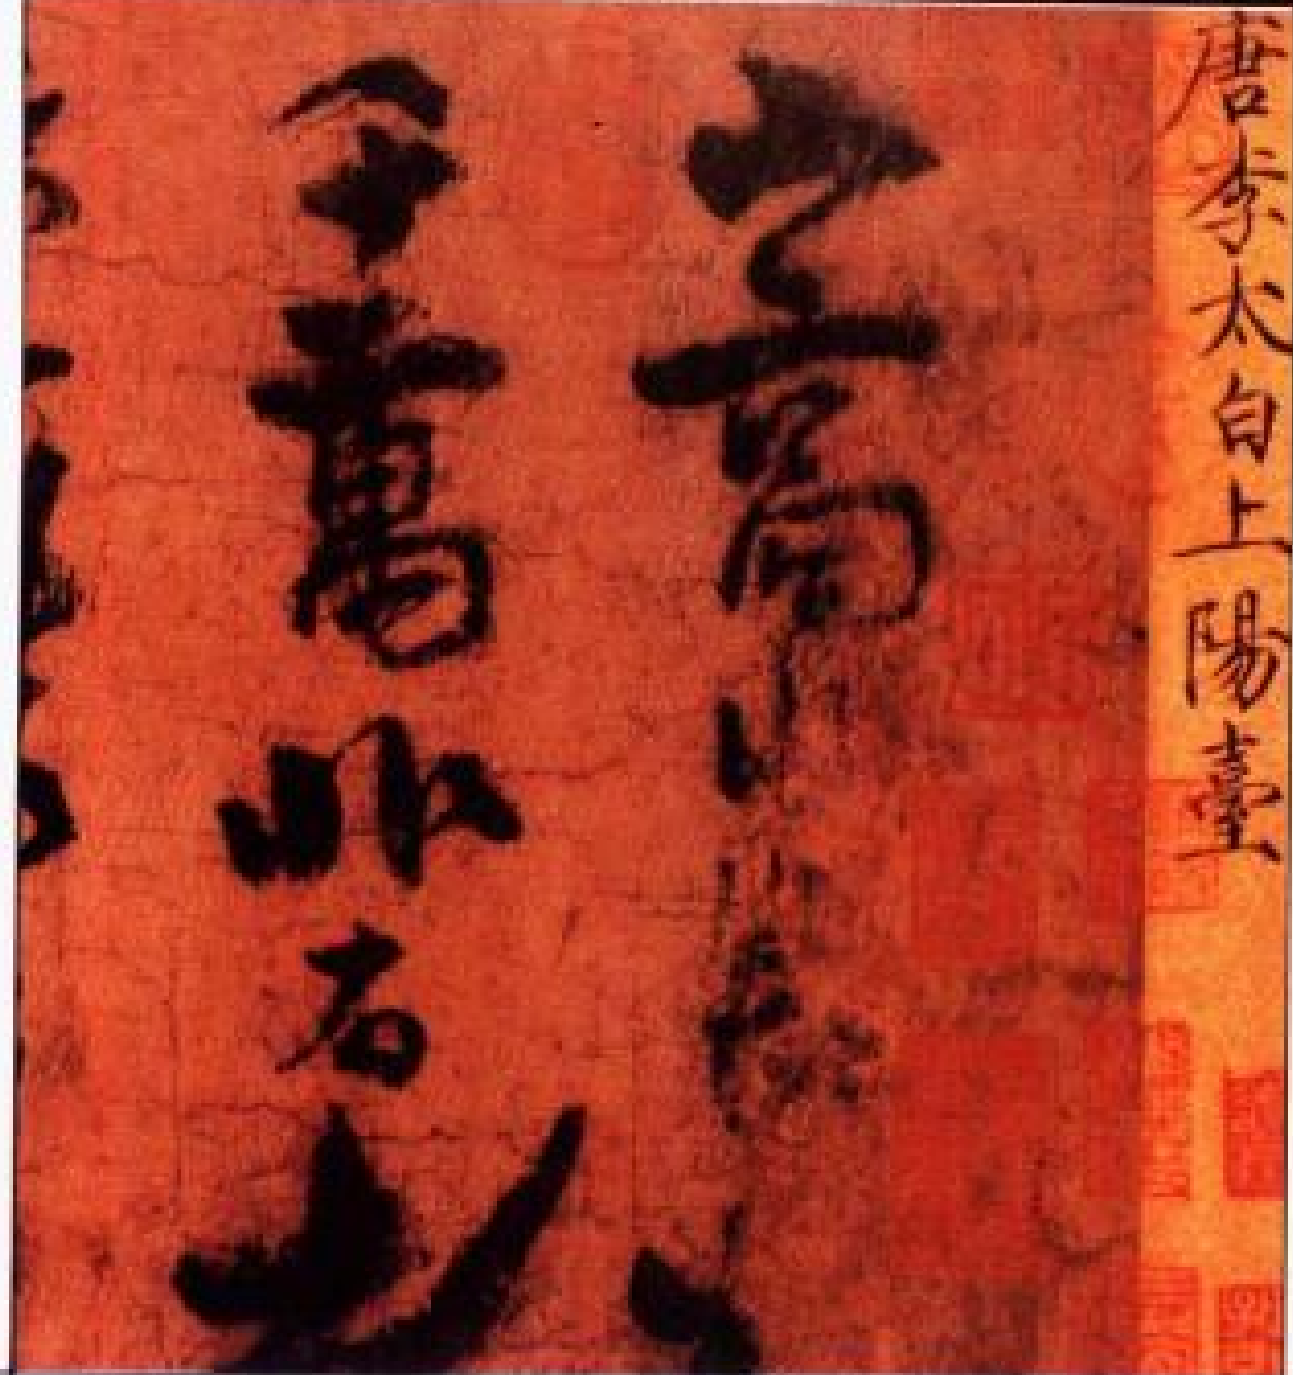 唐李太白上陽臺
山高水長
千萬非有老